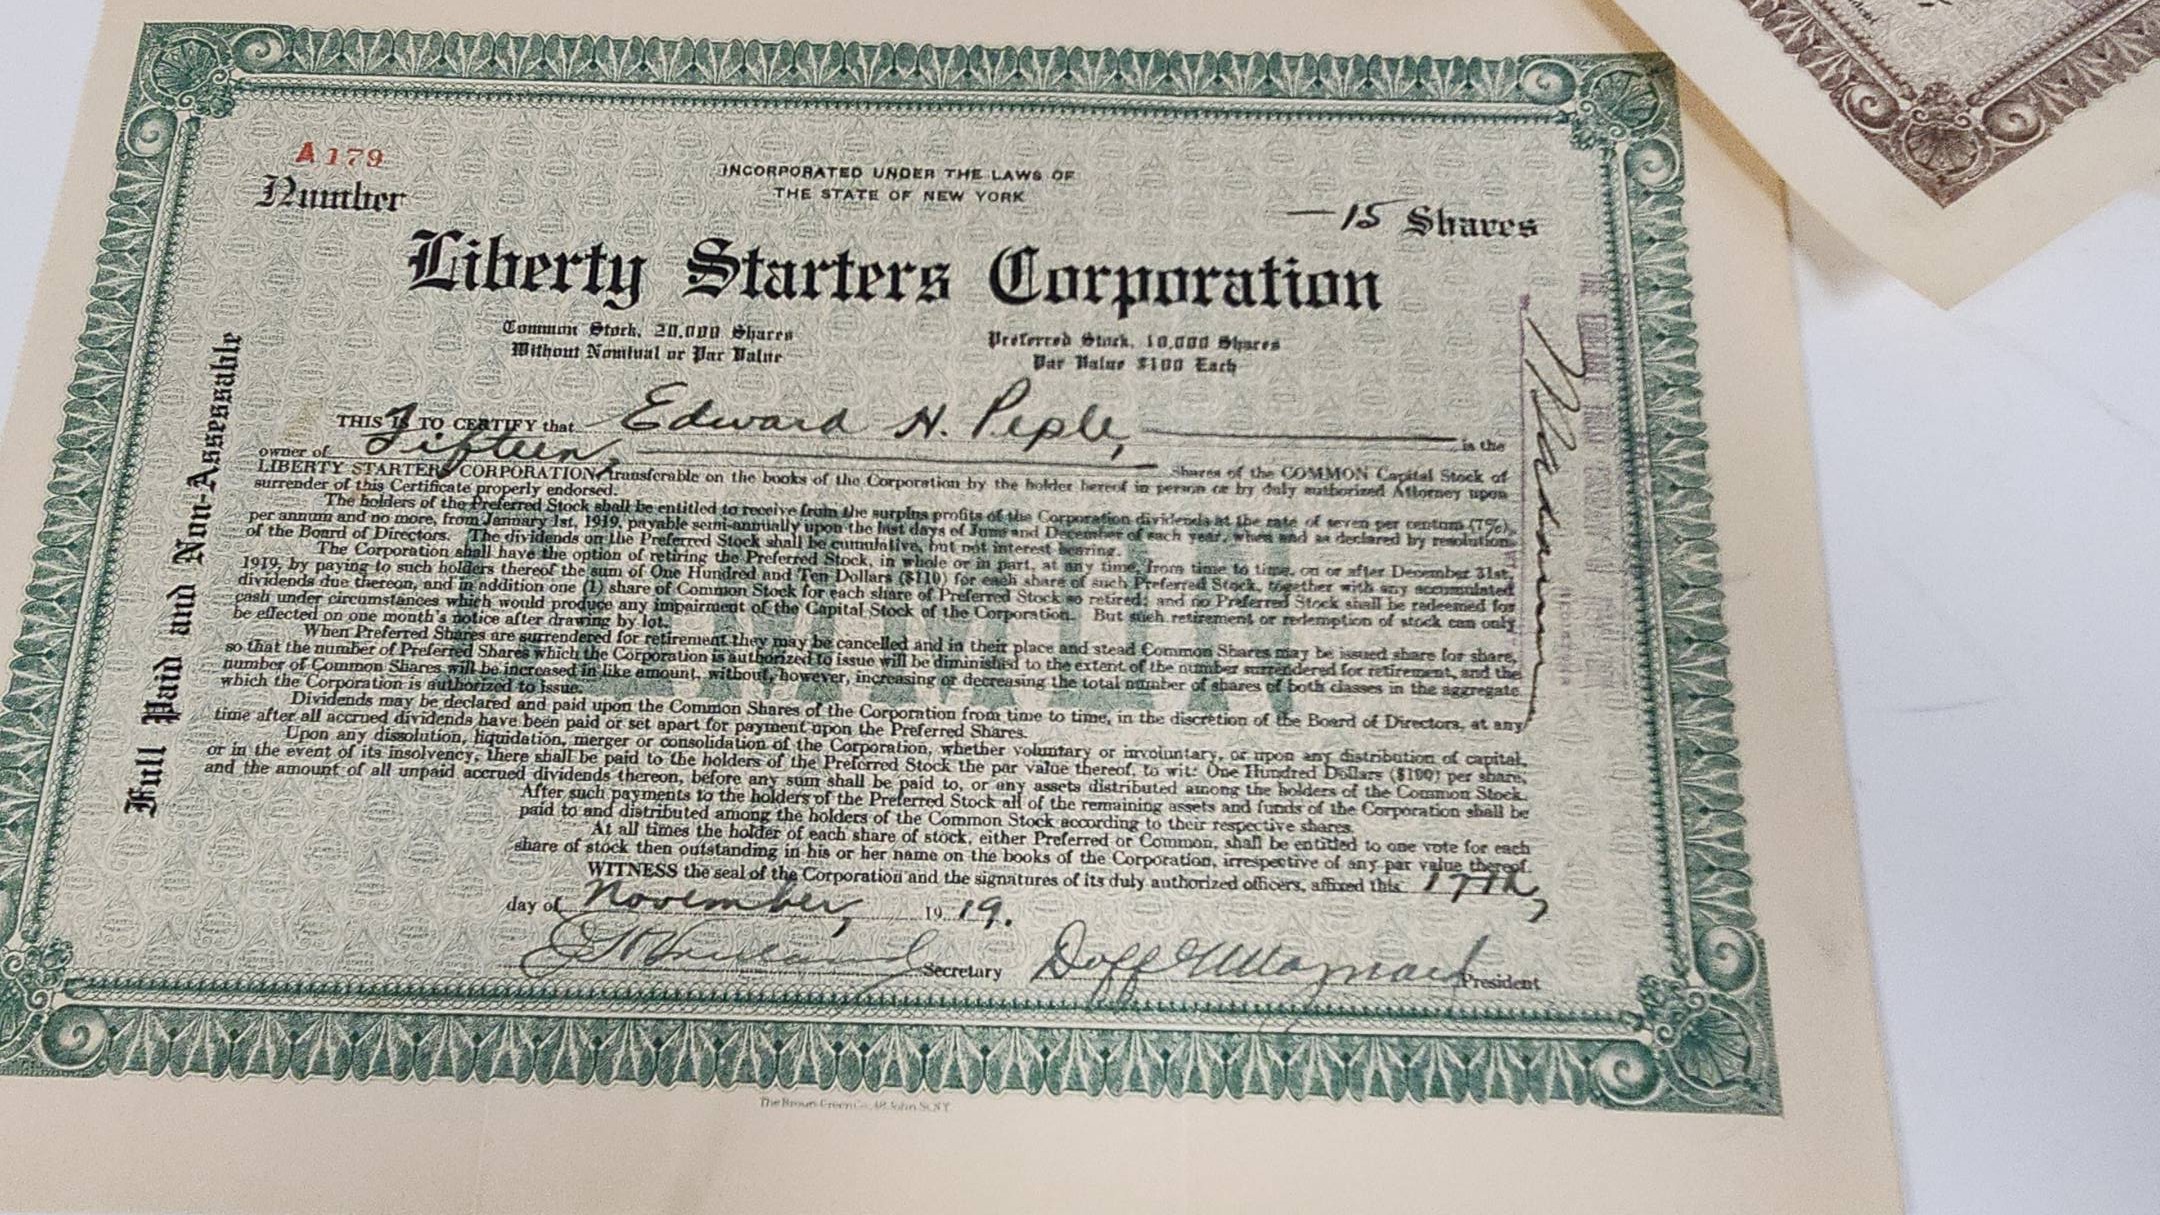 A179
Number
INCORPORATED UNDER THE LAWS OF
THE STATE OF NEW YORK
—15 Shares
Liberty Starters Corporation
Common Stock, 20,000 Shares
Without Nominal or Par Value
Preferred Stock, 10,000 Shares
Par Value $100 Each
Full Paid and Non-Assessable
THIS IS TO CERTIFY that Edward H. Peple, is the
owner of Fifteen, Shares of the COMMON Capital Stock of
LIBERTY STARTERS CORPORATION, transferable on the books of the Corporation by the holder hereof in person or by duly authorized Attorney upon
surrender of this Certificate properly endorsed.
The holders of the Preferred Stock shall be entitled to receive from the surplus profits of the Corporation dividends at the rate of seven per centum (7%),
per annum and no more, from January 1st, 1919, payable semi-annually upon the last days of June and December of each year, when and as declared by resolution
of the Board of Directors. The dividends on the Preferred Stock shall be cumulative, but not interest bearing.
The Corporation shall have the option of retiring the Preferred Stock, in whole or in part, at any time, from time to time, on or after December 31st,
1919, by paying to such holders thereof the sum of One Hundred and Ten Dollars ($110) for each share of such Preferred Stock, together with any accumulated
dividends due thereon, and in addition one (1) share of Common Stock for each share of Preferred Stock so retired; and no Preferred Stock shall be redeemed for
cash under circumstances which would produce any impairment of the Capital Stock of the Corporation. But such retirement or redemption of stock can only
be effected on one month's notice after drawing by lot.
When Preferred Shares are surrendered for retirement they may be cancelled and in their place and stead Common Shares may be issued share for share,
so that the number of Preferred Shares which the Corporation is authorized to issue will be diminished to the extent of the number surrendered for retirement, and the
number of Common Shares will be increased in like amount, without, however, increasing or decreasing the total number of shares of both classes in the aggregate
which the Corporation is authorized to issue.
Dividends may be declared and paid upon the Common Shares of the Corporation from time to time, in the discretion of the Board of Directors, at any
time after all accrued dividends have been paid or set apart for payment upon the Preferred Shares.
Upon any dissolution, liquidation, merger or consolidation of the Corporation, whether voluntary or involuntary, or upon any distribution of capital,
or in the event of its insolvency, there shall be paid to the holders of the Preferred Stock the par value thereof, to wit: One Hundred Dollars ($100) per share,
and the amount of all unpaid accrued dividends thereon, before any sum shall be paid to, or any assets distributed among the holders of the Common Stock.
After such payments to the holders of the Preferred Stock all of the remaining assets and funds of the Corporation shall be
paid to and distributed among the holders of the Common Stock according to their respective shares.
At all times the holder of each share of stock, either Preferred or Common, shall be entitled to one vote for each
share of stock then outstanding in his or her name on the books of the Corporation, irrespective of any par value thereof.
WITNESS the seal of the Corporation and the signatures of its duly authorized officers, affixed this 17th,
day of November, 1919.
Secretary
President